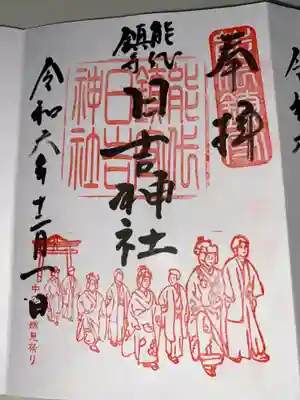 奉拝
能代
鎮守
日吉神社
令和六年
能代
鎮守
日吉
神社
嫁見祭り